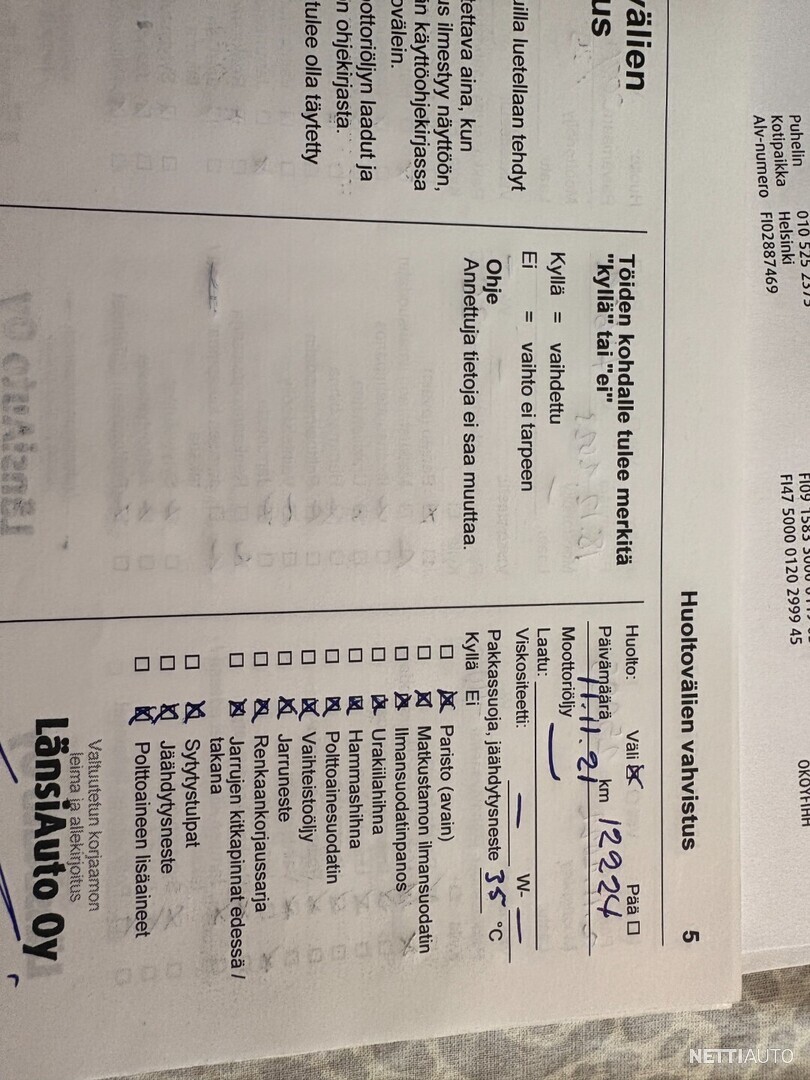 Puhelin 010 525 2375
Kotipaikka Helsinki
Alv-numero FI02887469
FI47 5000 0120 2999 45
OKOYFIHH
välien
us
uilla luetellaan tehdyt
ettava aina, kun
us ilmestyy näyttöön,
n käyttöohjekirjassa
ovälein.
oottoriöljyn laadut ja
n ohjekirjasta.
tulee olla täytetty
Töiden kohdalle tulee merkitä
"kyllä" tai "ei"
Kyllä = vaihdettu
Ei = vaihto ei tarpeen
Ohje
Annettuja tietoja ei saa muuttaa.
Huoltovälien vahvistus 5
Huolto: Väli ☒ Pää ☐
Päivämäärä 11.11.21 km 12224
Moottoriöljy —
Laatu:
Viskositeetti: — W- —
Pakkassuoja, jäähdytysneste 35 °C
Kyllä Ei
☐ ☒ Paristo (avain)
☐ ☒ Matkustamon ilmansuodatin
☐ ☒ Ilmansuodatinpanos
☐ ☒ Urakiilahihna
☐ ☒ Hammashihna
☐ ☒ Polttoainesuodatin
☐ ☒ Vaihteistoöljy
☐ ☒ Jarruneste
☐ ☒ Renkaankorjaussarja
☐ ☒ Jarrujen kitkapinnat edessä /
takana
☐ ☒ Sytytystulpat
☐ ☒ Jäähdytysneste
☐ ☒ Polttoaineen lisäaineet
Valtuutetun korjaamon
leima ja allekirjoitus
LänsiAuto Oy
NETTIAUTO